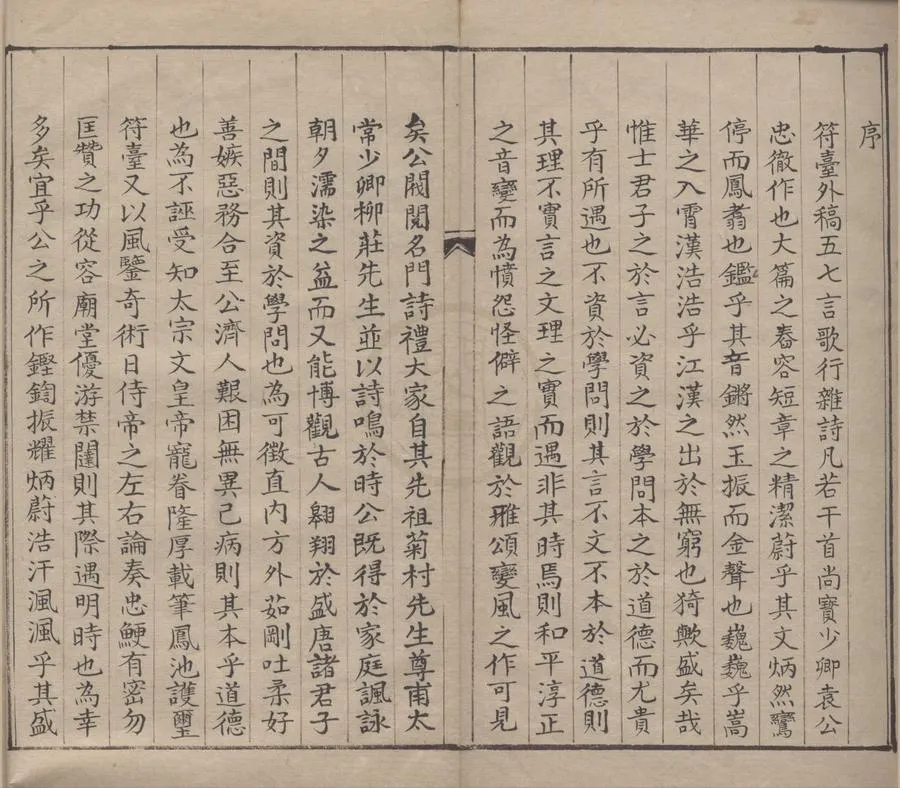 序
符臺外稿五七言歌行雜詩凡若干首尚寶少卿袁公
忠徹作也大篇之舂容短章之精潔蔚乎其文炳然鸞
停而鳳翥也鑑乎其音鏘然玉振而金聲也巍巍乎嵩
華之入霄漢浩浩乎江漢之出於無窮也猗歟盛矣哉
惟士君子之於言必資之於學問本之於道德而尤貴
乎有所遇也不資於學問則其言不文不本於道德則
其理不實言之文理之實而遇非其時焉則和平淳正
之音變而為憤怨怪僻之語觀於雅頌變風之作可見
矣公閥閱名門詩禮大家自其先祖菊村先生尊甫太
常少卿柳莊先生並以詩鳴於時公既得於家庭諷詠
朝夕濡染之益而又能博觀古人翱翔於盛唐諸君子
之間則其資於學問也為可徵直內方外茹剛吐柔好
善嫉惡務合至公濟人艱困無異己病則其本乎道德
也為不誣受知太宗文皇帝寵眷隆厚載筆鳳池護璽
符臺又以風鑒奇術日侍帝之左右論奏忠鯁有密勿
匡贊之功從容廟堂優游禁闥則其際遇明時也為幸
多矣宜乎公之所作鏗鍧振耀炳蔚浩汗渢渢乎其盛